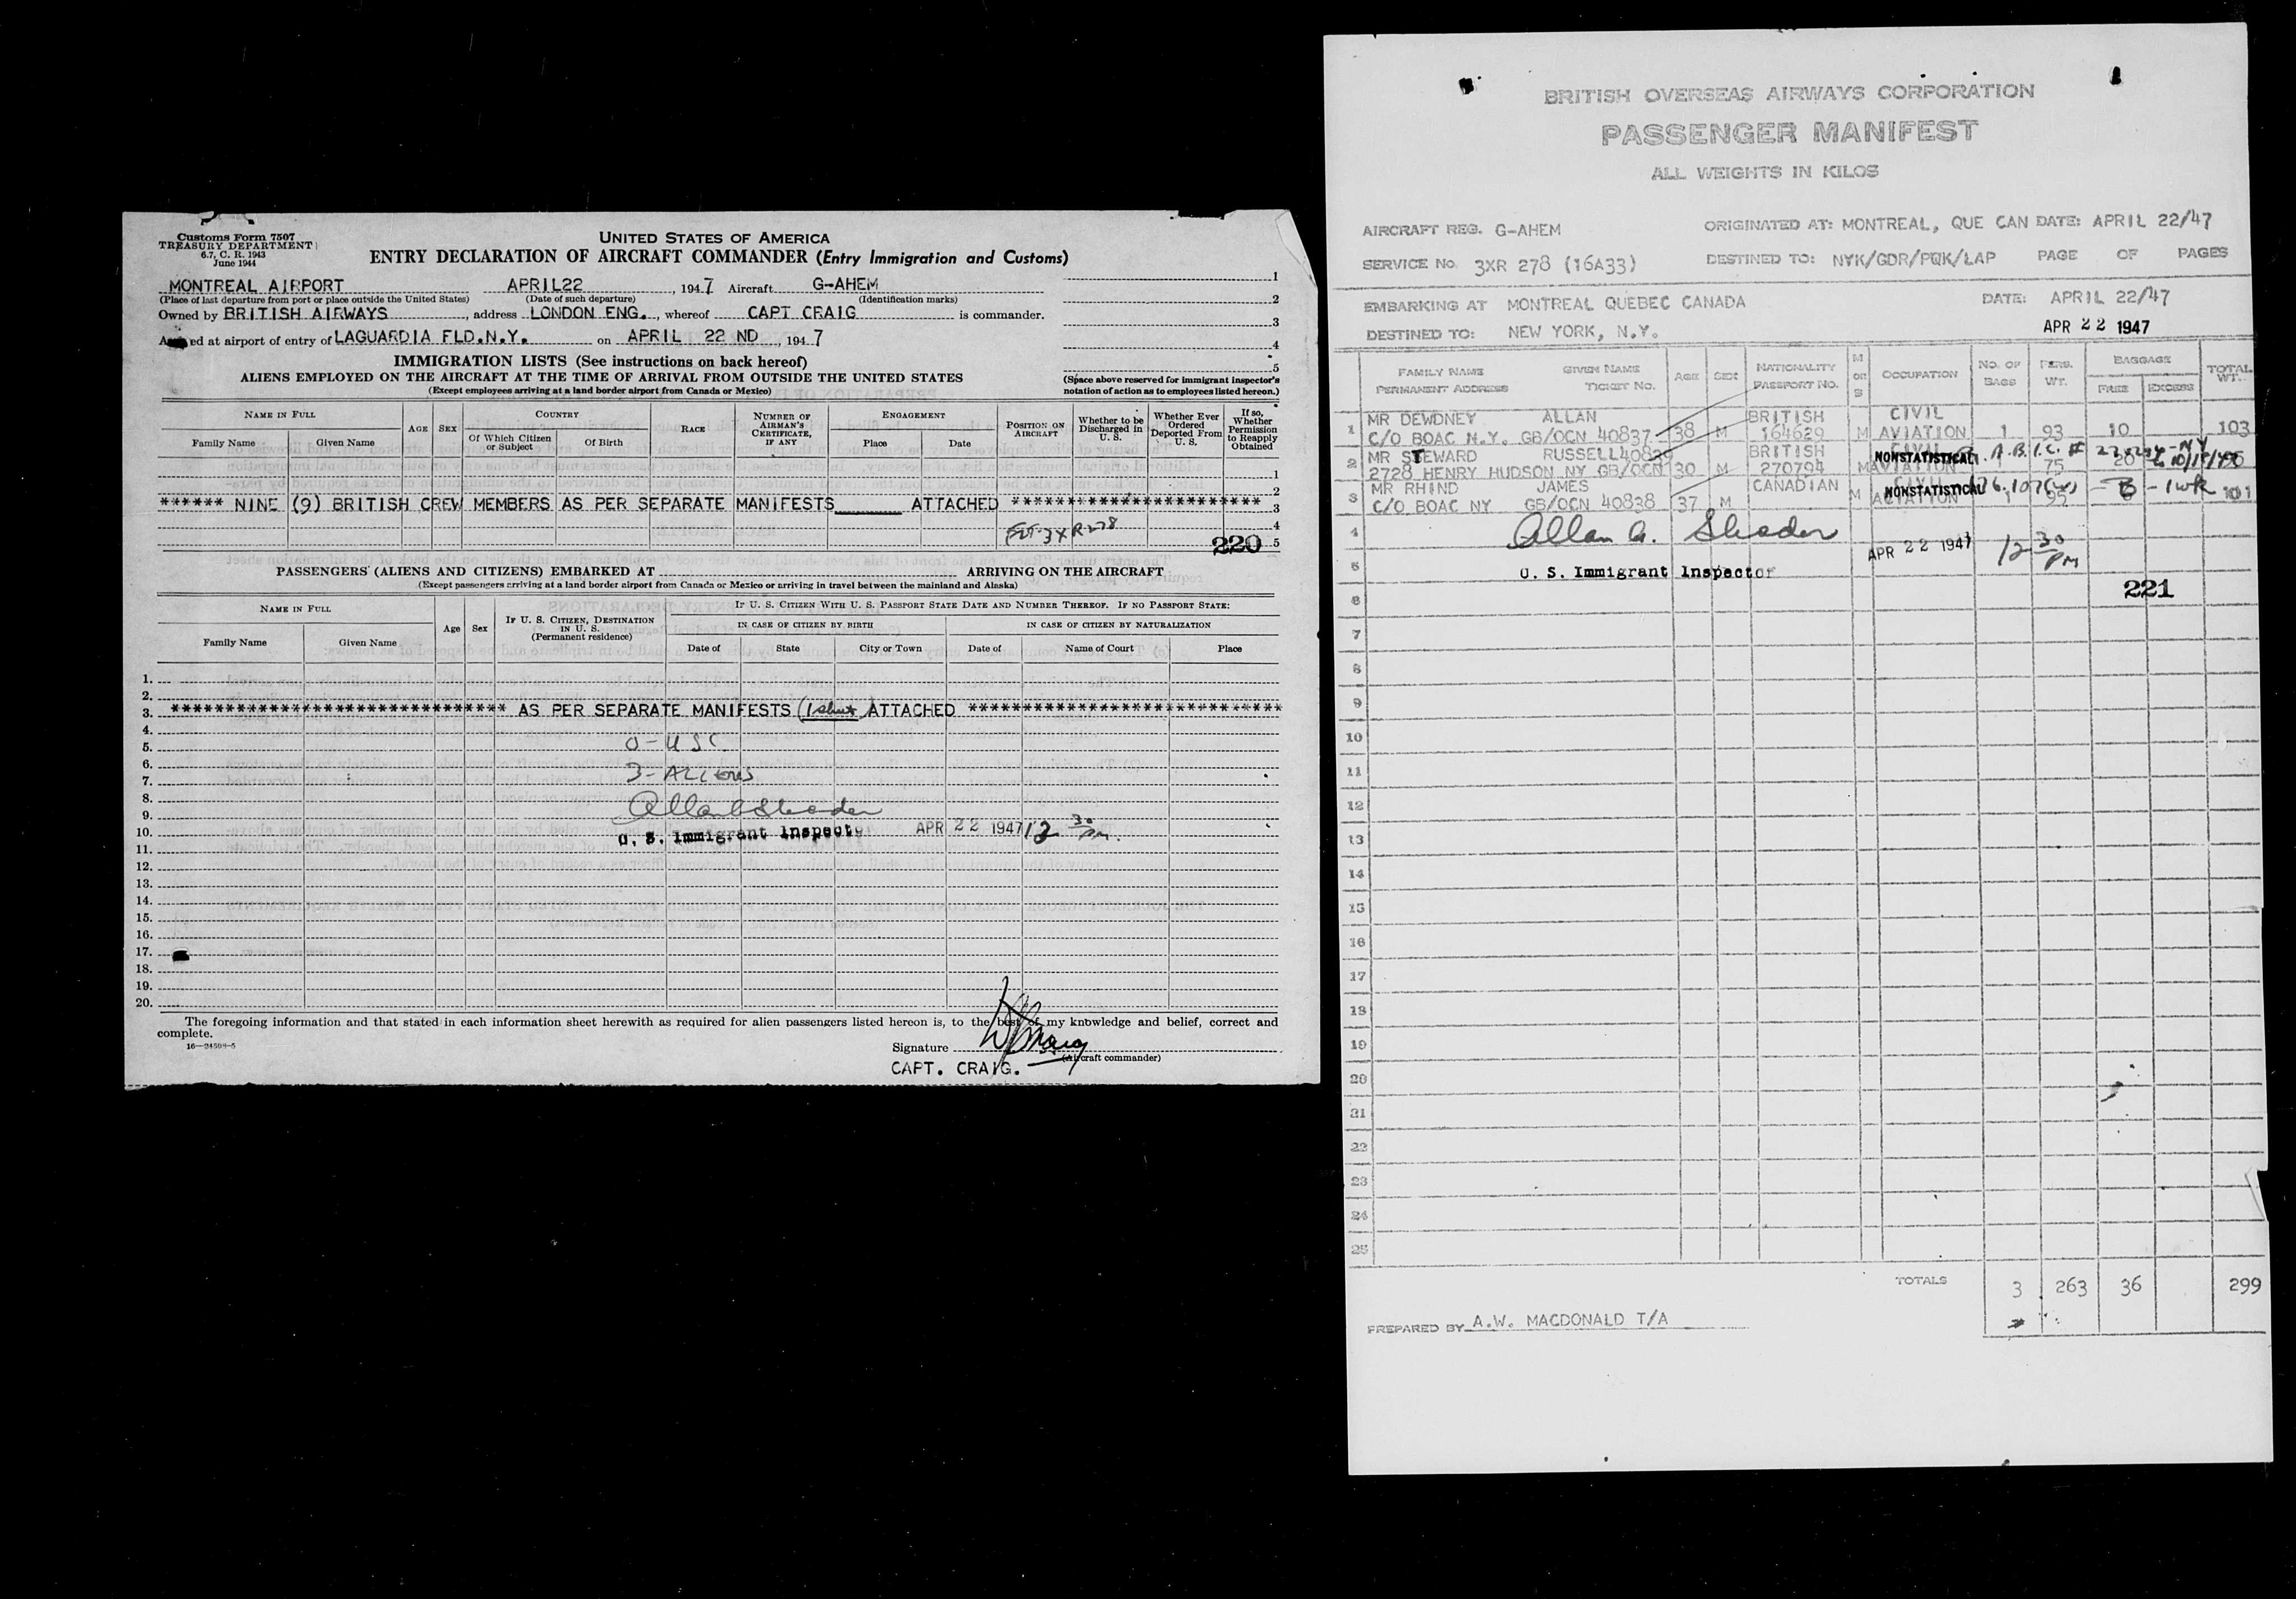 Customs Form 7507
TREASURY DEPARTMENT
6.7, C. R. 1943
June 1944
UNITED STATES OF AMERICA
ENTRY DECLARATION OF AIRCRAFT COMMANDER (Entry Immigration and Customs)
MONTREAL AIRPORT APRIL22, 1947 Aircraft G-AHEM
(Place of last departure from port or place outside the United States) (Date of such departure) (Identification marks)
Owned by BRITISH AIRWAYS, address LONDON ENG., whereof CAPT CRAIG is commander.
ed at airport of entry of LAGUARDIA FLD.N.Y. on APRIL 22 ND, 1947
1
2
3
4
5
(Space above reserved for immigrant inspector's notation of action as to employees listed hereon.)
IMMIGRATION LISTS (See instructions on back hereof)
ALIENS EMPLOYED ON THE AIRCRAFT AT THE TIME OF ARRIVAL FROM OUTSIDE THE UNITED STATES
(Except employees arriving at a land border airport from Canada or Mexico)
NAME IN FULL
Family Name Given Name
AGE SEX
COUNTRY
Of Which Citizen or Subject Of Birth
RACE
NUMBER OF AIRMAN'S CERTIFICATE, IF ANY
ENGAGEMENT
Place Date
POSITION ON AIRCRAFT
Whether to be Discharged in U. S.
Whether Ever Ordered Deported From U. S.
If so, Whether Permission to Reapply Obtained
1
2
****** NINE (9) BRITISH CREW MEMBERS AS PER SEPARATE MANIFESTS ATTACHED *********************** 3
4
FLT-3XR278
220 5
PASSENGERS (ALIENS AND CITIZENS) EMBARKED AT ARRIVING ON THE AIRCRAFT
(Except passengers arriving at a land border airport from Canada or Mexico or arriving in travel between the mainland and Alaska)
NAME IN FULL
Family Name Given Name
Age Sex
IF U. S. CITIZEN, DESTINATION IN U. S. (Permanent residence)
IF U. S. CITIZEN WITH U. S. PASSPORT STATE DATE AND NUMBER THEREOF. IF NO PASSPORT STATE:
IN CASE OF CITIZEN BY BIRTH IN CASE OF CITIZEN BY NATURALIZATION
Date of State City or Town Date of Name of Court Place
1.
2.
3. ******************************* AS PER SEPARATE MANIFESTS (1 sheet) ATTACHED *****************************
4.
5. 0-USC
6.
7. 3-Aliens
8.
9.
10. U. S. Immigrant Inspector APR 22 1947 12 30 PM.
11.
12.
13.
14.
15.
16.
17.
18.
19.
20.
The foregoing information and that stated in each information sheet herewith as required for alien passengers listed hereon is, to the best of my knowledge and belief, correct and
complete.
16—24503-5
Signature
(Aircraft commander)
CAPT. CRAIG.
BRITISH OVERSEAS AIRWAYS CORPORATION
PASSENGER MANIFEST
ALL WEIGHTS IN KILOS
AIRCRAFT REG. G-AHEM ORIGINATED AT: MONTREAL, QUE CAN DATE: APRIL 22/47
SERVICE No. 3XR 278 (16A33) DESTINED TO: NYK/GDR/PQK/LAP PAGE OF PAGES
EMBARKING AT MONTREAL QUEBEC CANADA DATE: APRIL 22/47
DESTINED TO: NEW YORK, N.Y. APR 22 1947
FAMILY NAME GIVEN NAME
PERMANENT ADDRESS TICKET NO.
AGE SEX
NATIONALITY
PASSPORT NO.
M or S
OCCUPATION
NO. OF BAGS
PERS. WT.
BAGGAGE
FREE EXCESS
TOTAL WT.
1 MR DEWDNEY ALLAN BRITISH CIVIL
C/O BOAC N.Y. GB/OCN 40837 38 M 164629 M AVIATION 1 93 10 103
2 MR STEWARD RUSSELL40829 BRITISH CIVIL NONSTATISTICAL
2728 HENRY HUDSON NY GB/OCN 30 M 270794 M AVIATION 1 75 20
3 MR RHIND JAMES CANADIAN M CIVIL NONSTATISTICAL
C/O BOAC NY GB/OCN 40838 37 M 1 95 101
4 Allan G. Shader
5 APR 22 1947 12 30 PM
U. S. Immigrant Inspector
6 221
7
8
9
10
11
12
13
14
15
16
17
18
19
20
21
22
23
24
25
TOTALS 3 263 36 299
PREPARED BY A.W. MACDONALD T/A